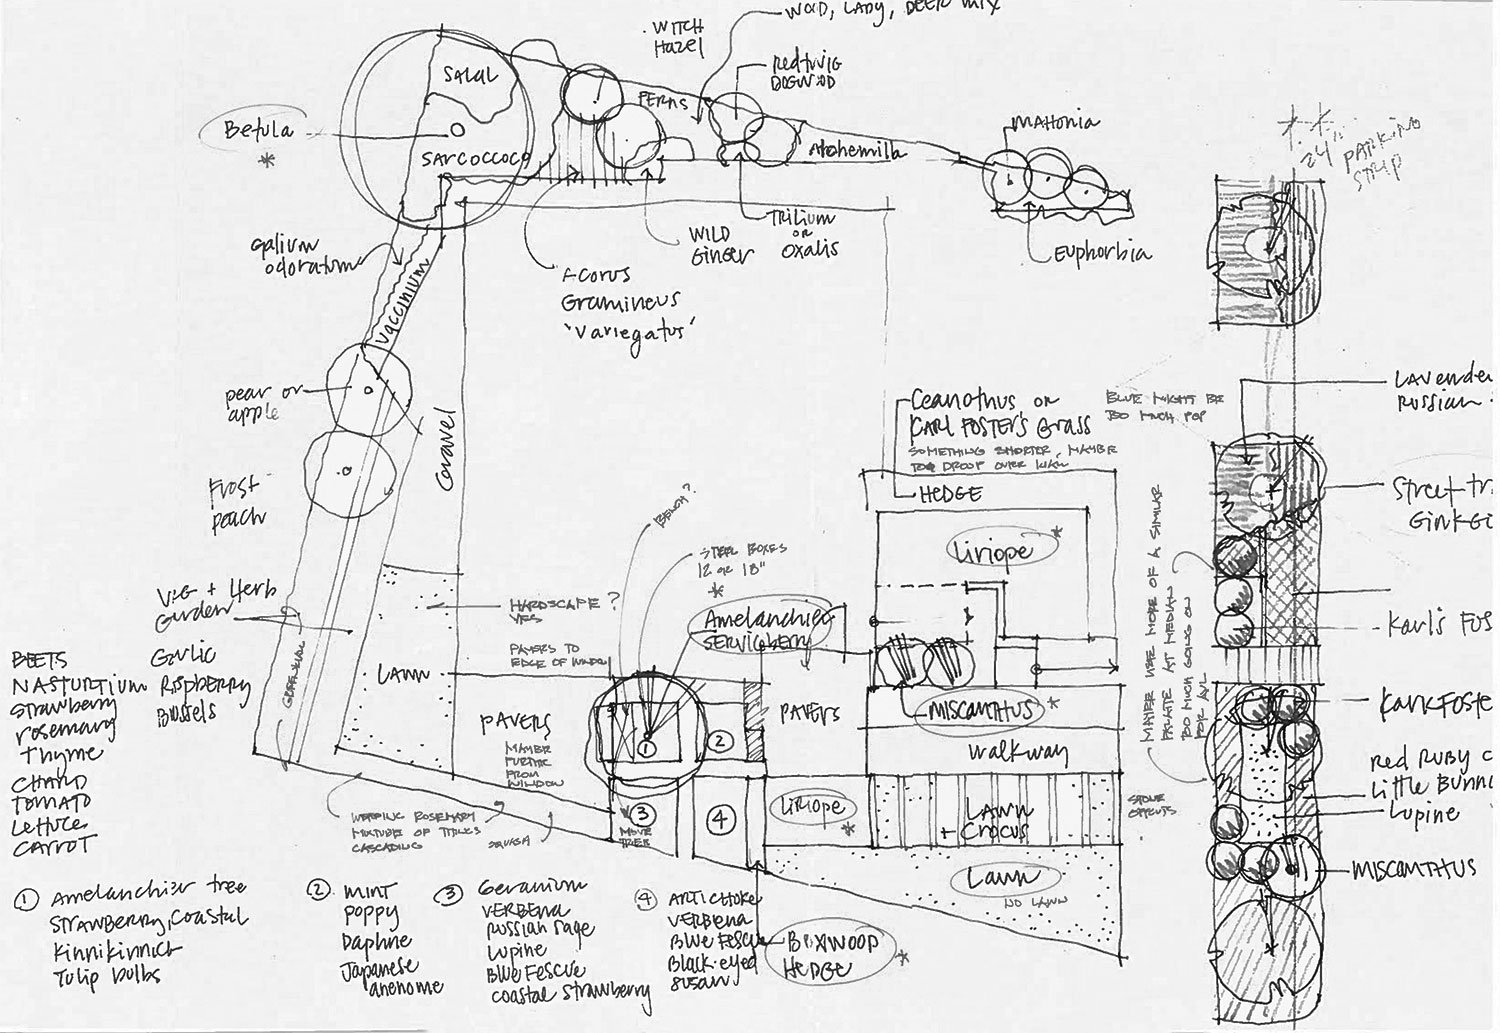 WOOD, LADY, DEER MIX
WITCH
Hazel
Redtwig
DOGWOOD
SALAL
FERNS
MAHONIA
Betula
*
SARCOCCOCO
Alchemilla
24"
PARKING
STRIP
Galium
odoratum
Vaccinium
WILD
Ginger
TRILIUM
OR
OXALIS
Euphorbia
Acorus
Gramineus
'Variegatus'
pear or
apple
Gravel
Frost
peach
Ceanothus or
KARL FOSTER'S Grass
SOMETHING SHORTER, MAYBE
TO DROOP OVER WALL
HEDGE
BLUE MIGHT BE
TOO MUCH POP
LAVENDE
RUSSIAN
Street tr
GINKG
BENCH?
STEEL BOXES
12 OR 18"
*
Liriope *
MAYBE USE MORE OF A SIMILAR
PALATE AT MEDIAN
TOO MUCH GOING ON
FOR
VEG + Herb
Garden
HARDSCAPE?
YES
Amelanchier
SERVICEBERRY
Karl's FOS
PAVERS TO
EDGE OF WINDOW
BEETS
NASTURTIUM
Strawberry
rosemary
Thyme
CHARD
TOMATO
Lettuce
CARROT
Garlic
Raspberry
Brussels
LAWN
PAVERS
MAYBE
FURTHER
FROM
WINDOW
1
2
3
MOVE
TREE
4
PAVERS
MISCANTHUS *
Walkway
KARL FOSTE
Red Ruby C
Little Bunni
Lupine
Liriope
*
LAWN
+ Crocus
STONE
Lawn
NO LAWN
MISCANTHUS
WEEPING ROSEMARY
MIXTURE OF THINGS
CASCADING
SQUASH
1 Amelanchier tree
STRAWBERRY, coastal
Kinnikinnich
Tulip bulbs
2 MINT
POPPY
Daphne
Japanese
anenome
3 Geranium
VERBENA
Russian sage
Lupine
Blue Fescue
coastal strawberry
4 ARTICHOKE
VERBENA
Blue Fescue
Black-eyed
SUSAN
BOXWOOD
HEDGE *